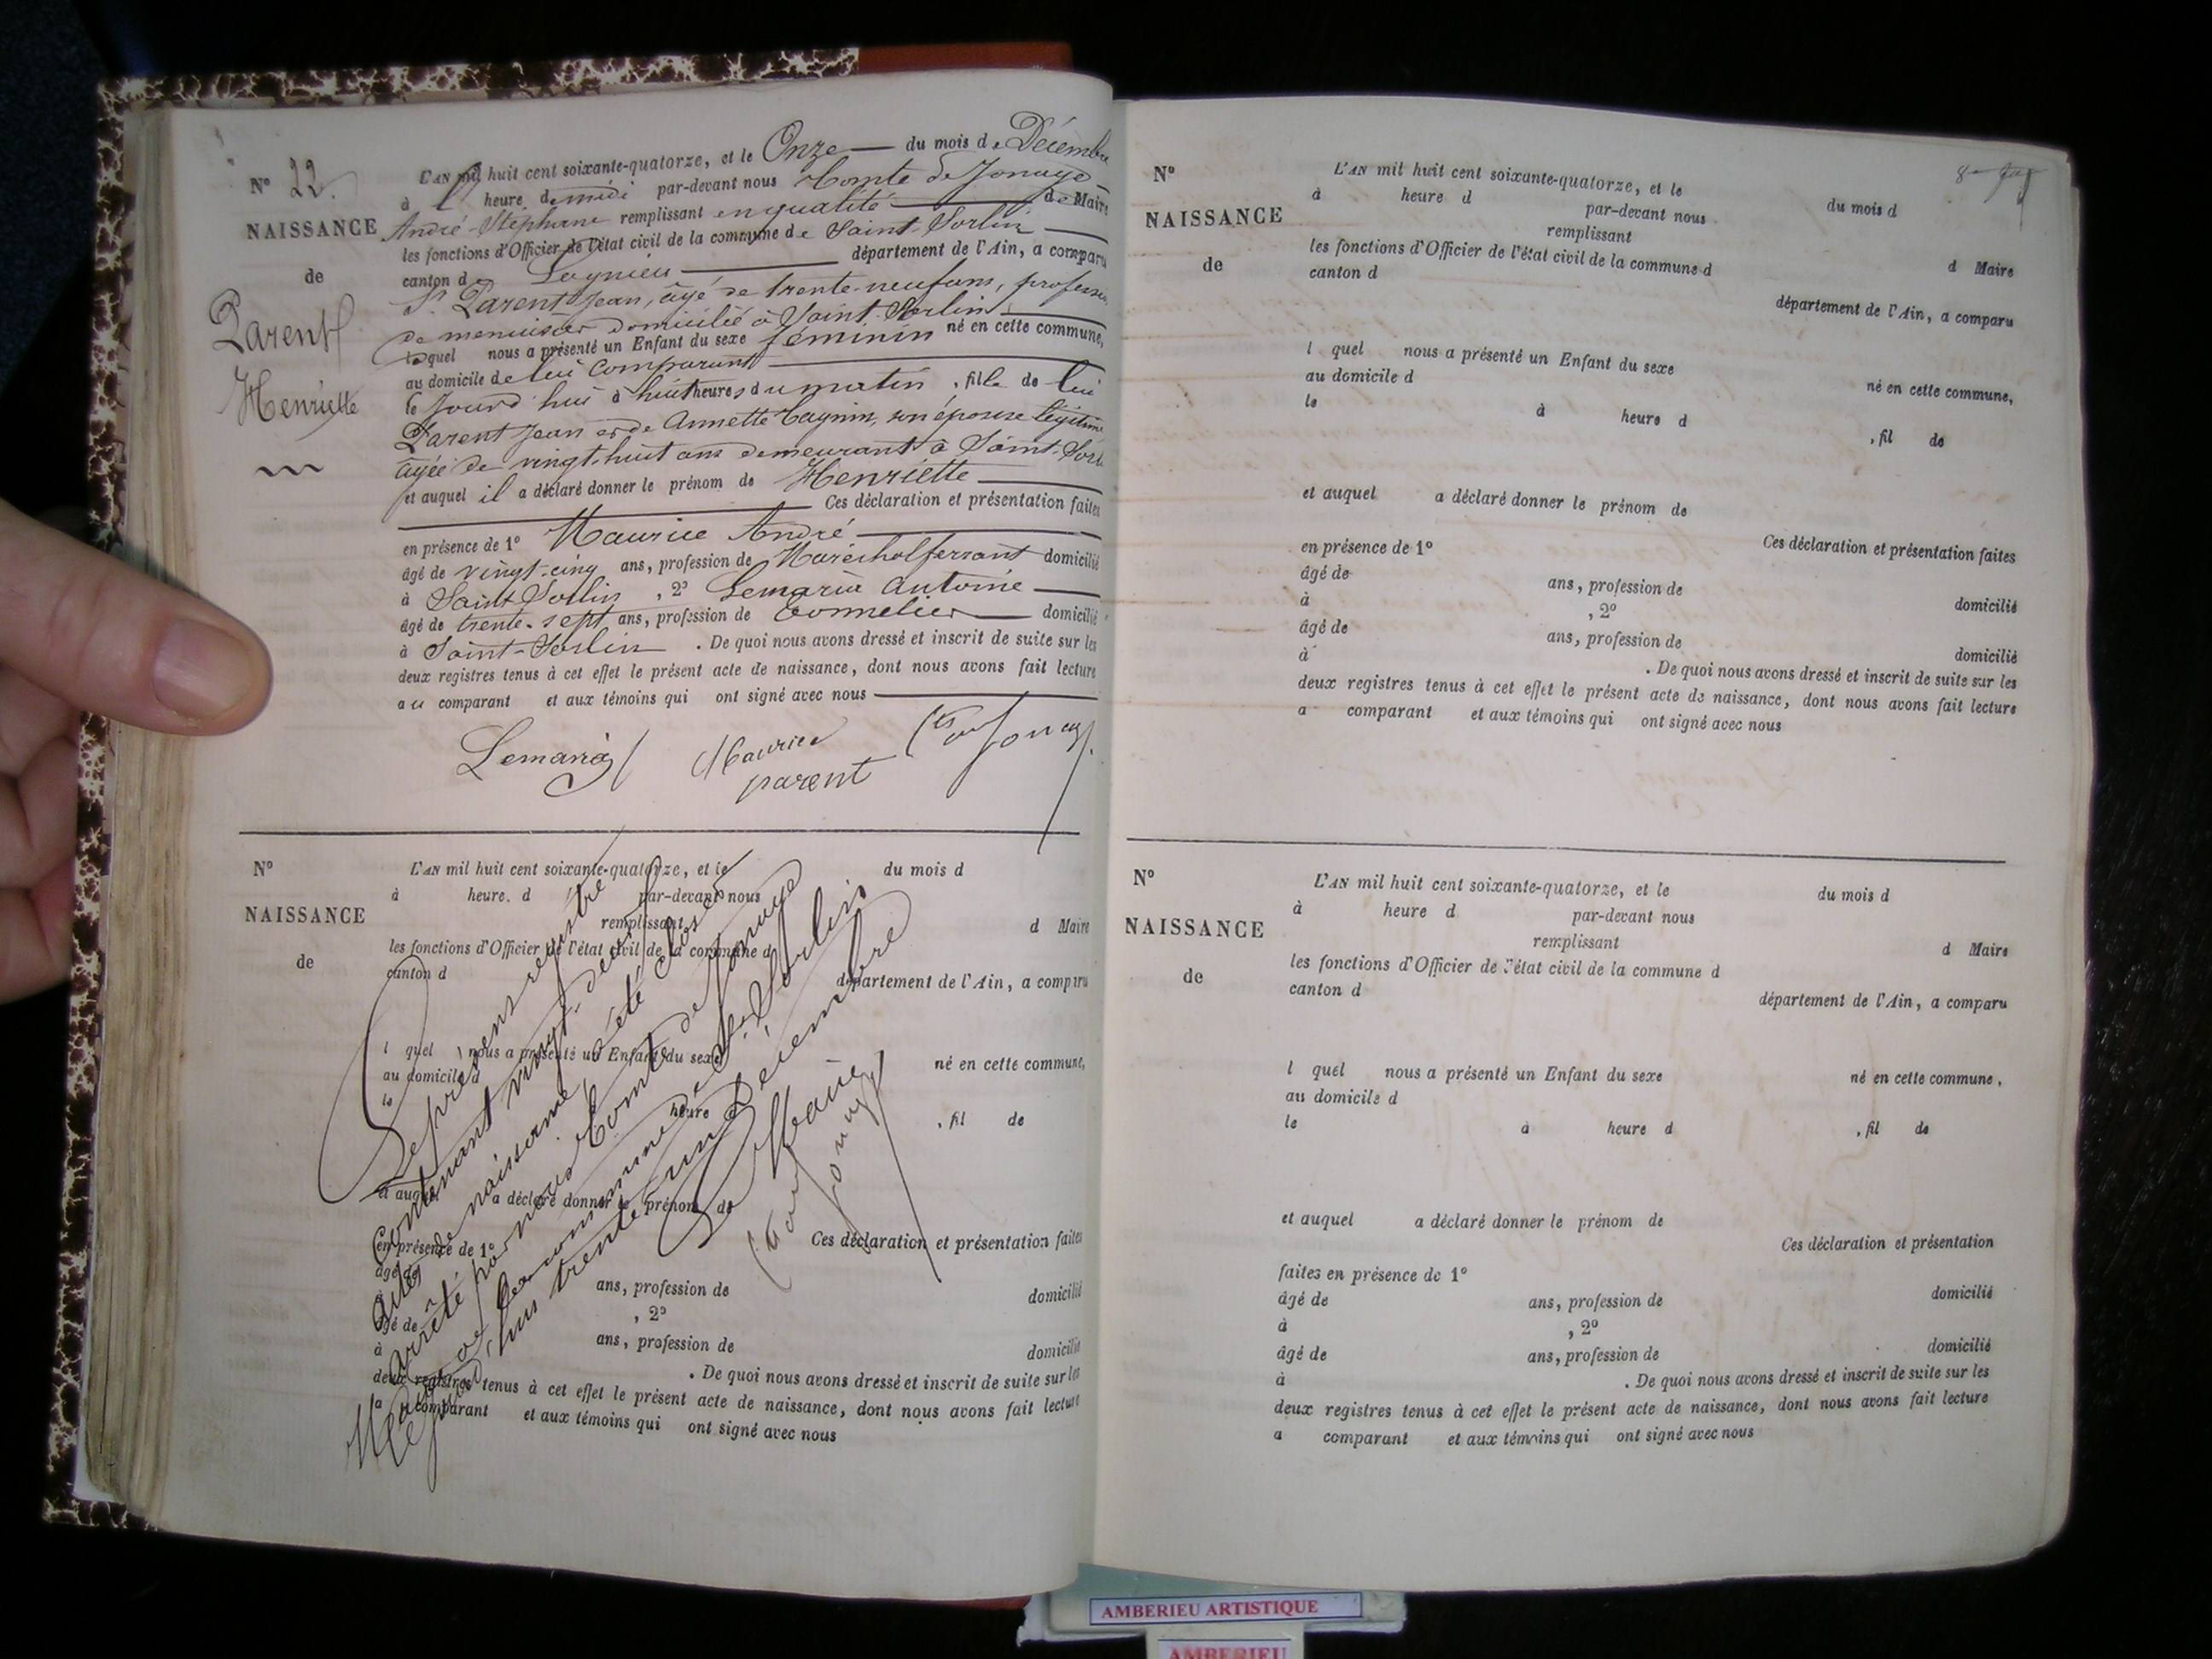 N° 22.
NAISSANCE
de
Parent
Henriette
L'AN mil huit cent soixante-quatorze, et le Onze du mois de Décembre
à heure de midi par-devant nous Comte de Jonage
André-Stéphane remplissant en qualité de Maire
les fonctions d'Officier de l'état civil de la commune de Saint-Sorlin
canton de Lagnieu département de l'Ain, a comparu
Sr Parent Jean, âgé de trente-neuf ans, profession
de menuisier domicilié à Saint-Sorlin
lequel nous a présenté un Enfant du sexe féminin né en cette commune,
au domicile de lui comparant
le jourd'hui à huit heures du matin, fille de lui
Parent Jean et de Annette Cagnin, son épouse légitime
âgée de vingt-huit ans demeurant à Saint-Sorlin
et auquel il a déclaré donner le prénom de Henriette
Ces déclaration et présentation faites
en présence de 1° Maurice André
âgé de vingt-cinq ans, profession de Maréchal ferrant domicilié
à Saint-Sorlin, 2° Lemaria Antoine
âgé de trente-sept ans, profession de Tonnelier domicilié
à Saint-Sorlin. De quoi nous avons dressé et inscrit de suite sur les
deux registres tenus à cet effet le présent acte de naissance, dont nous avons fait lecture
au comparant et aux témoins qui ont signé avec nous
Lemaria Maurice
parent
N°
NAISSANCE
de
L'AN mil huit cent soixante-quatorze, et le du mois d
à heure. d par-devant nous
remplissant d Maire
les fonctions d'Officier de l'état civil de la commune d
canton d département de l'Ain, a comparu
l quel nous a présenté un Enfant du sexe né en cette commune,
au domicile d
le heure d , fil de
et auquel a déclaré donner le prénom de
Ces déclaration et présentation faites
en présence de 1°
âgé de ans, profession de domicilié
à , 2°
âgé de ans, profession de domicilié
à . De quoi nous avons dressé et inscrit de suite sur les
deux registres tenus à cet effet le présent acte de naissance, dont nous avons fait lecture
a comparant et aux témoins qui ont signé avec nous
Le présent registre
Contenant vingt-deux
actes de naissance a été closé
arrêté par nous Comte de Jonage
Maire de la commune de St-Sorlin
le jourd'hui trente un Décembre
Le Maire
N°
NAISSANCE
de
L'AN mil huit cent soixante-quatorze, et le du mois d
à heure d par-devant nous
remplissant d Maire
les fonctions d'Officier de l'état civil de la commune d
canton d département de l'Ain, a comparu
l quel nous a présenté un Enfant du sexe né en cette commune,
au domicile d
le à heure d , fil de
et auquel a déclaré donner le prénom de
Ces déclaration et présentation faites
en présence de 1°
âgé de ans, profession de domicilié
à , 2°
âgé de ans, profession de domicilié
à . De quoi nous avons dressé et inscrit de suite sur les
deux registres tenus à cet effet le présent acte de naissance, dont nous avons fait lecture
a comparant et aux témoins qui ont signé avec nous
N°
NAISSANCE
de
L'AN mil huit cent soixante-quatorze, et le du mois d
à heure d par-devant nous
remplissant d Maire
les fonctions d'Officier de l'état civil de la commune d
canton d département de l'Ain, a comparu
l quel nous a présenté un Enfant du sexe né en cette commune,
au domicile d
le à heure d , fil de
et auquel a déclaré donner le prénom de
Ces déclaration et présentation
faites en présence de 1°
âgé de ans, profession de domicilié
à , 2°
âgé de ans, profession de domicilié
à . De quoi nous avons dressé et inscrit de suite sur les
deux registres tenus à cet effet le présent acte de naissance, dont nous avons fait lecture
a comparant et aux témoins qui ont signé avec nous
AMBERIEU ARTISTIQUE
AMBERIEU